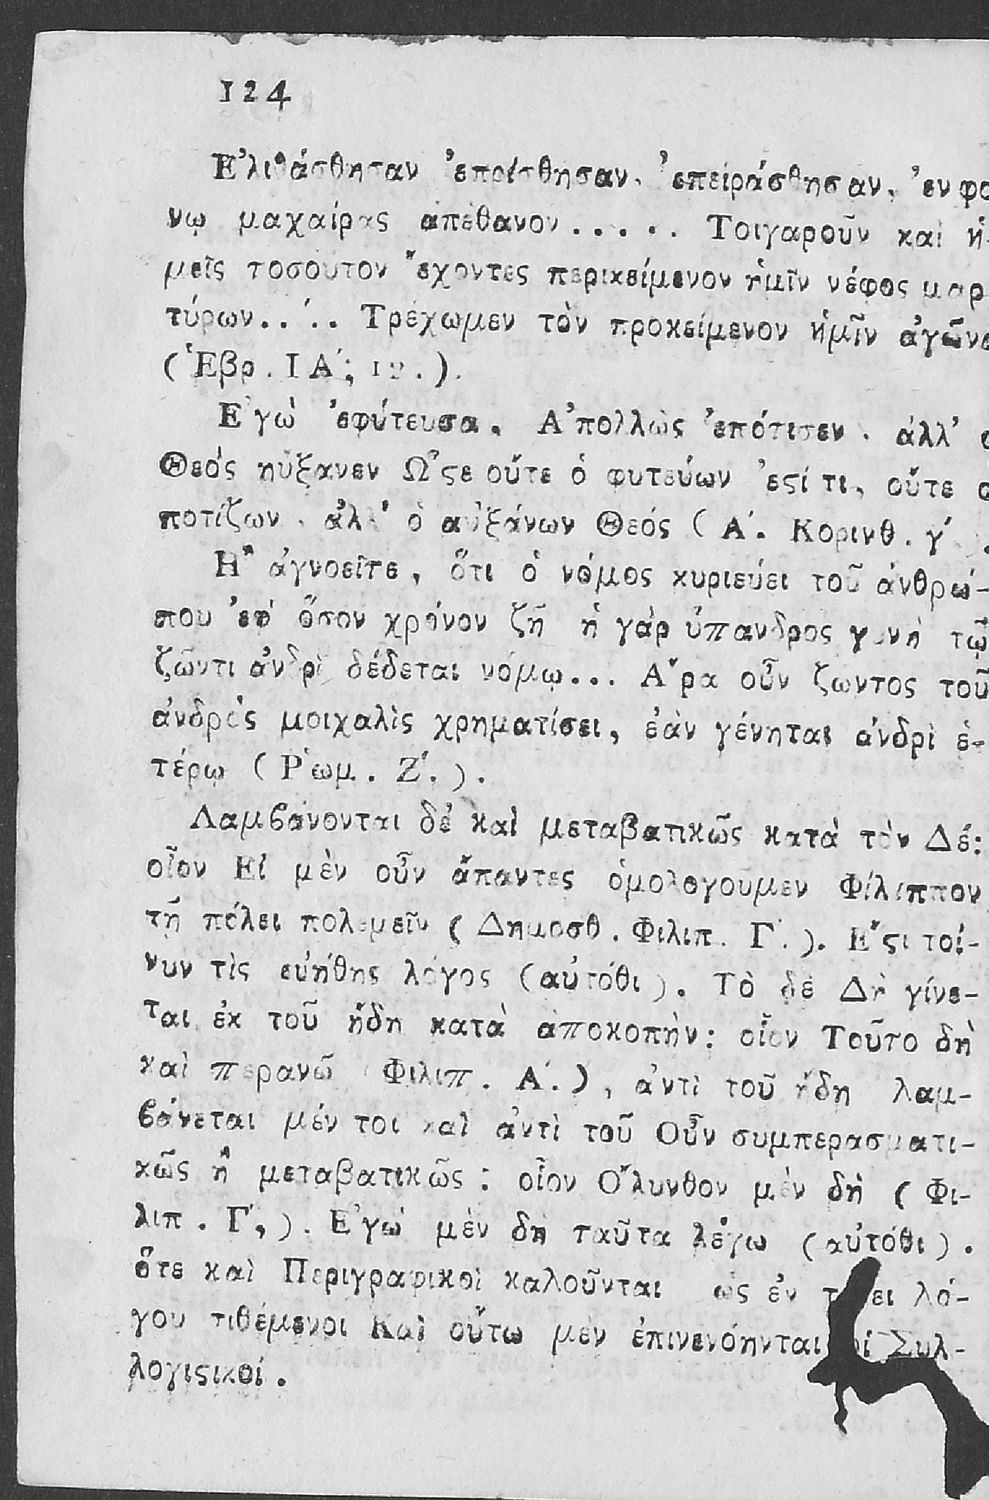 124
Ε᾿λιθάσθησαν ᾿επρίσθησαν, ᾿επειράσθησαν, ᾿εν φο
νῳ μαχαίρας ἀπέθανον . . . . . Τοιγαροῦν καὶ ἡ-
μεῖς τοσουτον ῎εχοντες περικείμενον ἡμῖν νέφος μαρ
τύρων. . . . . Τρέχωμεν τὸν προκείμενον ἡμῖν ἀγῶνα
(Ἑβρ. ΙΑ΄;
Ε᾿γὼ ᾿εφύτευσα, Α᾿πολλὼς ᾿επότισεν. ἀλλ᾿ ο
Θεὸς ηὔξανεν Ω῞ϛε οὔτε ὁ φυτεύων ᾿εϛί τι, οὔτε ο
ποτίζων, ἀλλ᾿ ὁ αὐξάνων Θεός (Α΄. Κορινθ. γ΄.).
Η῍ ἀγνοεῖτε, ὅτι ὁ νόμος κυριεύει τοῦ ἀνθρώ-
που ᾿εφ᾿ ὅσον χρόνον ζῆ ἡ γὰρ ὑπανδρος γυνὴ τῷ
ζῶντι ἀνδρὶ δέδεται νόμῳ... Α῎ρα οὖν ζωντος τοῦ
ἀνδρὸς μοιχαλὶς χρηματίσει, ἐὰν γένηται ἀνδρὶ ἑ-
τέρῳ (Ρ῾ωμ. Ζ΄.).
Λαμβάνονται δὲ καὶ μεταβατικῶς κατὰ τὸν Δέ:
οἷον Εἰ μὲν οὖν ἅπαντες ὁμολογοῦμεν Φίλιππον
τῇ πόλει πολεμεῖν (Δημοσθ. Φιλιπ. Γ΄.). Ε῎ϛι τοί-
νυν τὶς εὐήθης λόγος (αὐτόθι). Τὸ δὲ Δὴ γίνε-
ται ἐκ τοῦ ἤδη κατὰ ἀποκοπὴν: οἷον Τοῦτο δὴ
καὶ περανῶ (Φιλιπ. Α΄.), ἀντὶ τοῦ ἤδη λαμ-
βάνεται μέν τοι καὶ ἀντὶ τοῦ Οὖν συμπερασματι-
κῶς ἢ μεταβατικῶς: οἷον Ο῎λυνθον μὲν δὴ (Φι-
λιπ. Γ΄,). Ε᾿γὼ μὲν δη ταῦτα λέγω (αὐτόθι).
ὅτε καὶ Περιγραφικοὶ καλοῦνται ὡς ἐν τέλει λό-
γου τιθέμενοι Καὶ οὕτω μὲν ἐπινενόηνται οἱ Συλ-
λογιϛικοί.